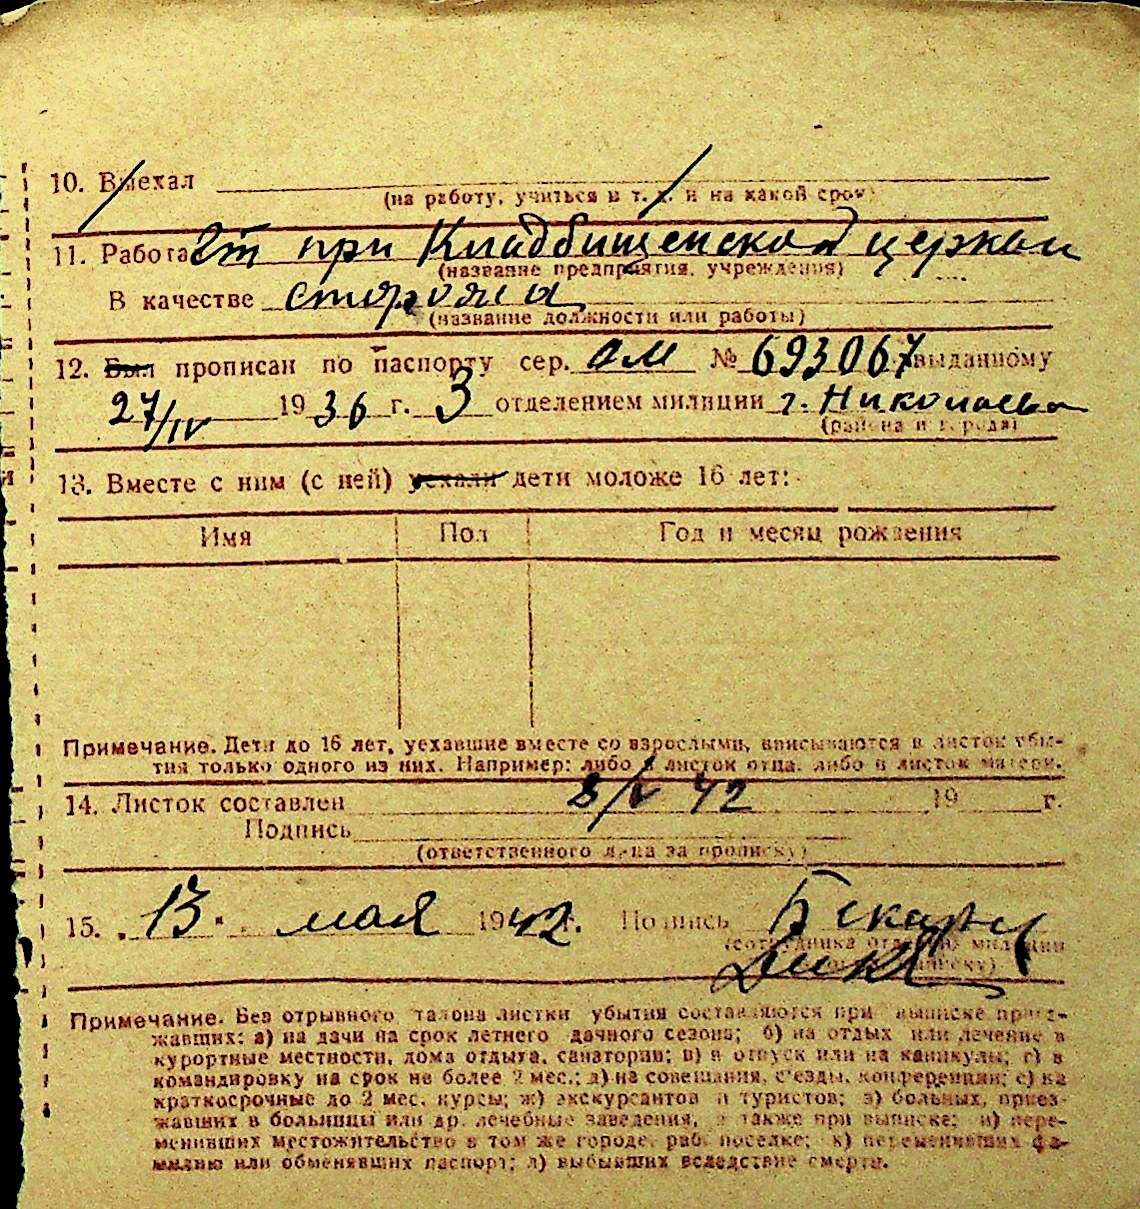 10. Выехал
(на работу, учиться и т. д. и на какой срок)
11. Работает при Кладбищенской церкви
(название предприятия, учреждения)
В качестве сторожа
(название должности или работы)
12. Был прописан по паспорту сер. ОМ № 693067 выданному
27/IV 1936 г. 3 отделением милиции г. Николаева
(района и города)
13. Вместе с ним (с ней) уехали дети моложе 16 лет:
Имя Пол Год и месяц рождения
Примечание. Дети до 16 лет, уехавшие вместе со взрослыми, вписываются в листок убы-
тия только одного из них. Например: либо в листок отца, либо в листок матери.
14. Листок составлен 8/V 42 19 г.
Подпись
(ответственного лица за прописку)
15. „ 13 " мая 1942 г. Подпись
(сотрудника отделения милиции
прописку)
Примечание. Без отрывного талона листки убытия составляются при выписке приез-
жавших: а) на дачи на срок летнего дачного сезона; б) на отдых или лечение в
курортные местности, дома отдыха, санатории; в) в отпуск или на каникулы; г) в
командировку на срок не более 2 мес.; д) на совещания, с'езды, конференции; е) на
краткосрочные до 2 мес. курсы; ж) экскурсантов и туристов; з) больных, приез-
жавших в больницы или др. лечебные заведения, а также при выписке; и) пере-
менивших местожительство в том же городе, раб. поселке; к) переменивших фа-
милию или обменявших паспорт; л) выбывших вследствие смерти.